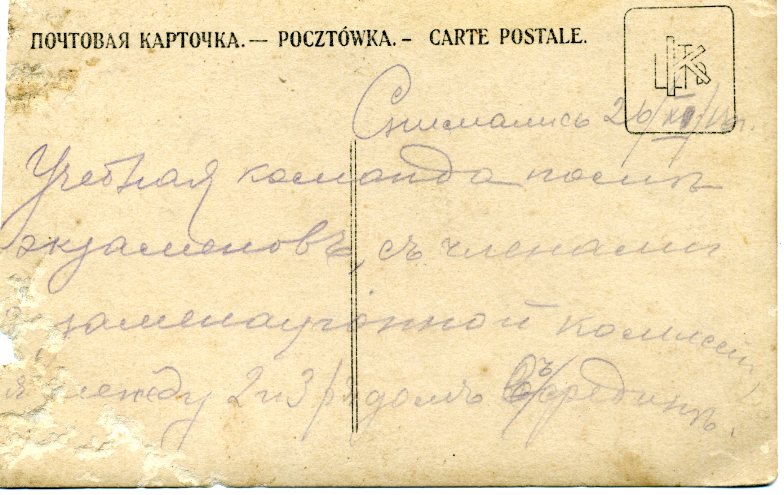 ПОЧТОВАЯ КАРТОЧКА.— POCZTÓWKA.– CARTE POSTALE.
Снимались 26/XII
Учебная команда послѣ
экзаменовъ, съ членами
заменаціонной комиссіи,
я между 2 и 3 рядомъ въ срединѣ.